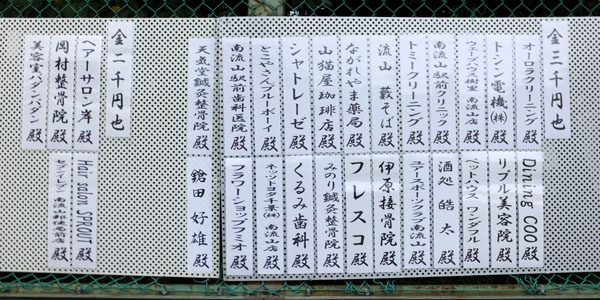 金三千円也
オーロラクリーニング殿
トーシン電機(株)殿
ウェアーハウス樹里 南流山店殿
南流山駅前クリニック殿
トミークリーニング殿
流山 藪そば殿
ながれやま薬局殿
山猫屋珈琲店殿
シャトレーゼ殿
とこやさんブルーボーイ殿
南流山駅前歯科医院殿
天気堂鍼灸整骨院殿
Dining COO殿
リブル美容院殿
ペットハウス ワンダフル殿
酒処 皓太殿
ユアースポーツクラブ南流山殿
伊原接骨院殿
フレスコ殿
みのり鍼灸整骨院殿
くるみ歯科殿
ネッツトヨタ千葉(株)南流山店殿
フラワーショップフミオ殿
鎗田 好雄殿
金二千円也
ヘアーサロン岸殿
岡村整骨院殿
美容室バダンバダン殿
Hair salon SPROUT殿
セブンイレブン 南流山郵便局前店殿